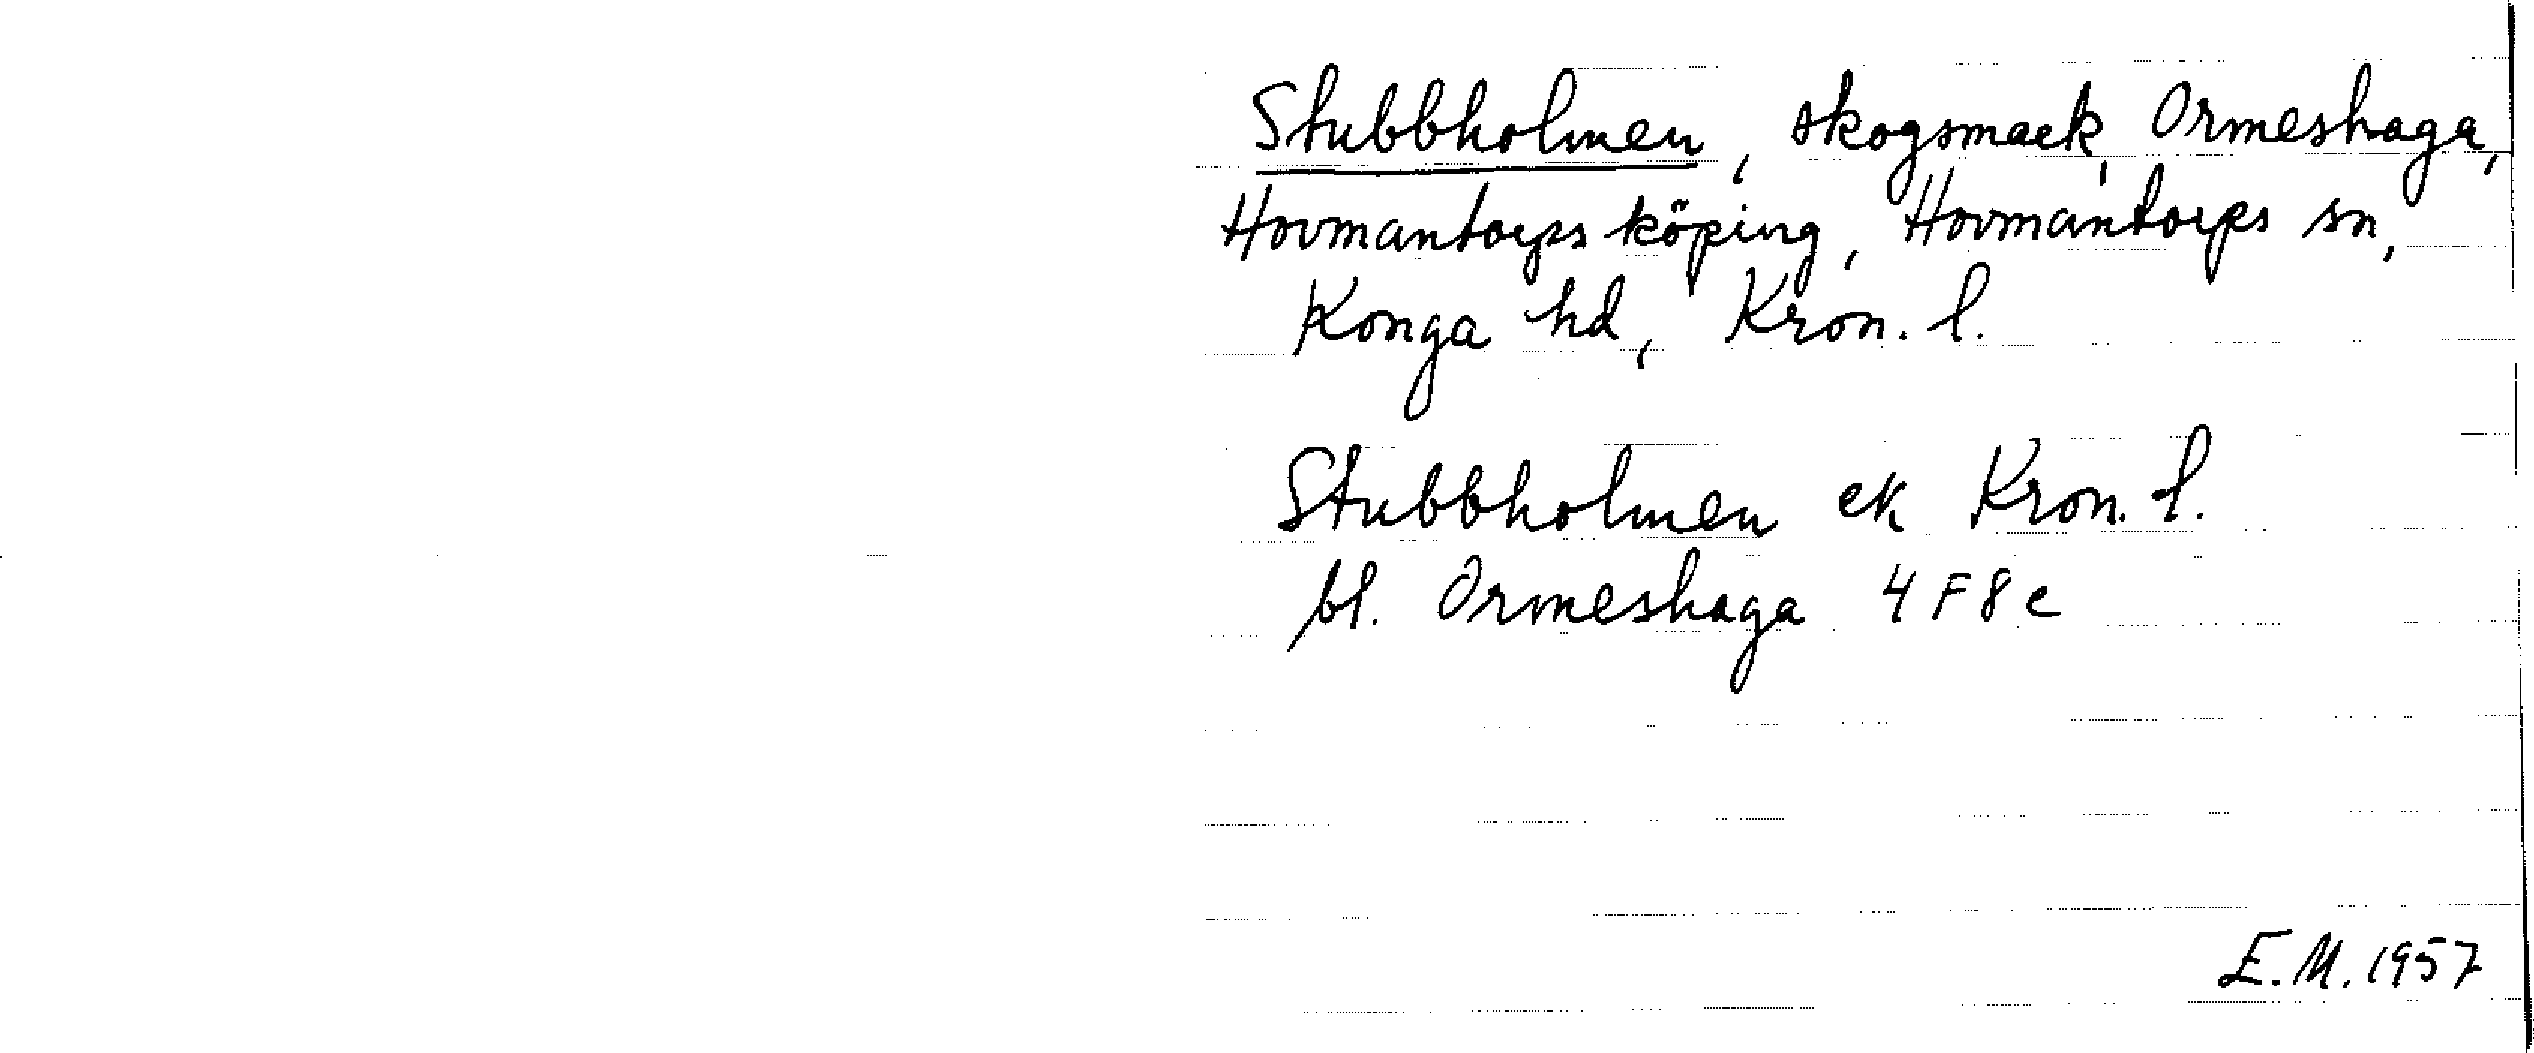 Stubbholmen, skogsmark, Ormeshaga,
Hovmantorps köping, Hovmantorps sn,
Konga hd, Kron. l.
Stubbholmen ek Kron. l.
bl. Ormeshaga 4 F 8 e
E.M. 1957